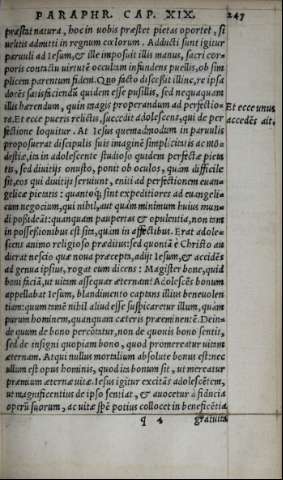 PARAPHR. CAP. XIX. 247
præstat natura, hoc in uobis præstet pietas oportet, si
uelitis admitti in regnum cœlorum. Adducti sunt igitur
paruuli ad Iesum, & ille imposuit illis manus, sacri cor=
poris contactu uirtutē occultam infundens puellis, ob sim
plicem parentum fidem. Quo facto discessit illinc, re ipsa
docēs satisfaciendū quidem esse pusillis, sed nequaquam
illis hærendum, quin magis properandum ad perfectio=
ra. Et ecce pueris relictis, succedit adolescens, qui de per
fectione loquitur. At Iesus quemadmodum in paruulis
proposuerat discipulis suis imaginē simplicitatis ac mo=
destiæ, ita in adolescente studioso quidem perfectæ pieta
tis, sed diuitijs onusto, ponit ob oculos, quàm difficile
sit, eos qui diuitijs seruiunt, eniti ad perfectionem euan=
gelicæ pietatis: quantoq́; sint expeditiores ad euangeli
cum negocium, qui nihil, aut quàm minimum huius mun
di possidēt: quanquam paupertas & opulentia, non tam
in possessionibus est sita, quàm in affectibus. Erat adole=
scens animo religioso præditus: sed quoniā è Christo au
dierat nescio quæ noua præcepta, adijt Iesum, & accidēs
ad genua ipsius, rogat eum dicens: Magister bone, quid
boni faciā, ut uitam assequar æternam? Adolescēs bonum
appellabat Iesum, blandimento captans illius beneuolen
tiam: quum tamē nihil aliud esse suspicaretur illum, quàm
purum hominem, quanquam cæteris præeminētē. Dein=
de quum de bono percōtatur, non de quouis bono sentit,
sed de insigni quopiam bono, quod promereatur uitam
æternam. Atqui nullus mortalium absolute bonus est: nec
ullum est opus hominis, quod ita bonum sit, ut mereatur
præmium æternæ uitæ. Iesus igitur excitās adolescētem,
ut magnificentius de ipso sentiat, & auocetur à fiducia
operū suorum, ac uitæ spē potius collocet in beneficētia
q 4 gratuita
Et ecce unus
accedēs ait.